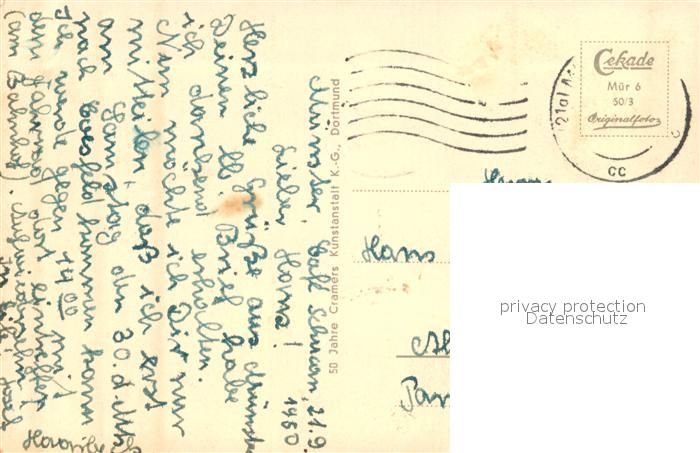 Münster, Café Schucan, 21.9.
1950
Lieber Hans!
Herzliche Grüße aus Münster.
Deinen lb. Brief habe
ich dankend erhalten.
Nun möchte ich Dir nur
mitteilen, daß ich erst
am Samstag den 30. d. Mts.
nach Coesfeld kommen kann
Ich werde gegen 14 00 mit
dem Fahrrad dort eintreffen
(am Bahnhof). Aufwiedersehn!
50 Jahre Cramers Kunstanstalt K.-G., Dortmund
Cekade
Mür 6
50/3
Originalfoto
(21a)
cc
Hans
privacy protection
Datenschutz